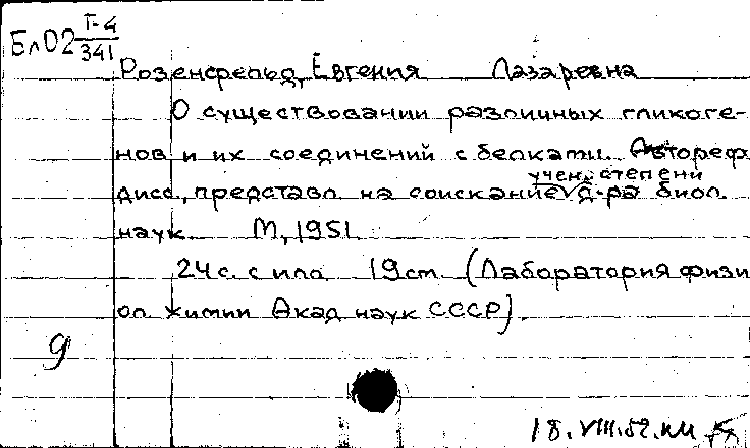 Бл02 Т-4/341
Розенфельд, Евгения Лазаревна
О существовании различных гликоге-
нов и их соединений с белками. Автореф
дисс., представл. на соискание учен. степени д-ра биол.
наук. М, 1951.
24 с. с илл 19 см (Лаборатория физи
ол химии Акад наук СССР).
9
18.VIII.52.